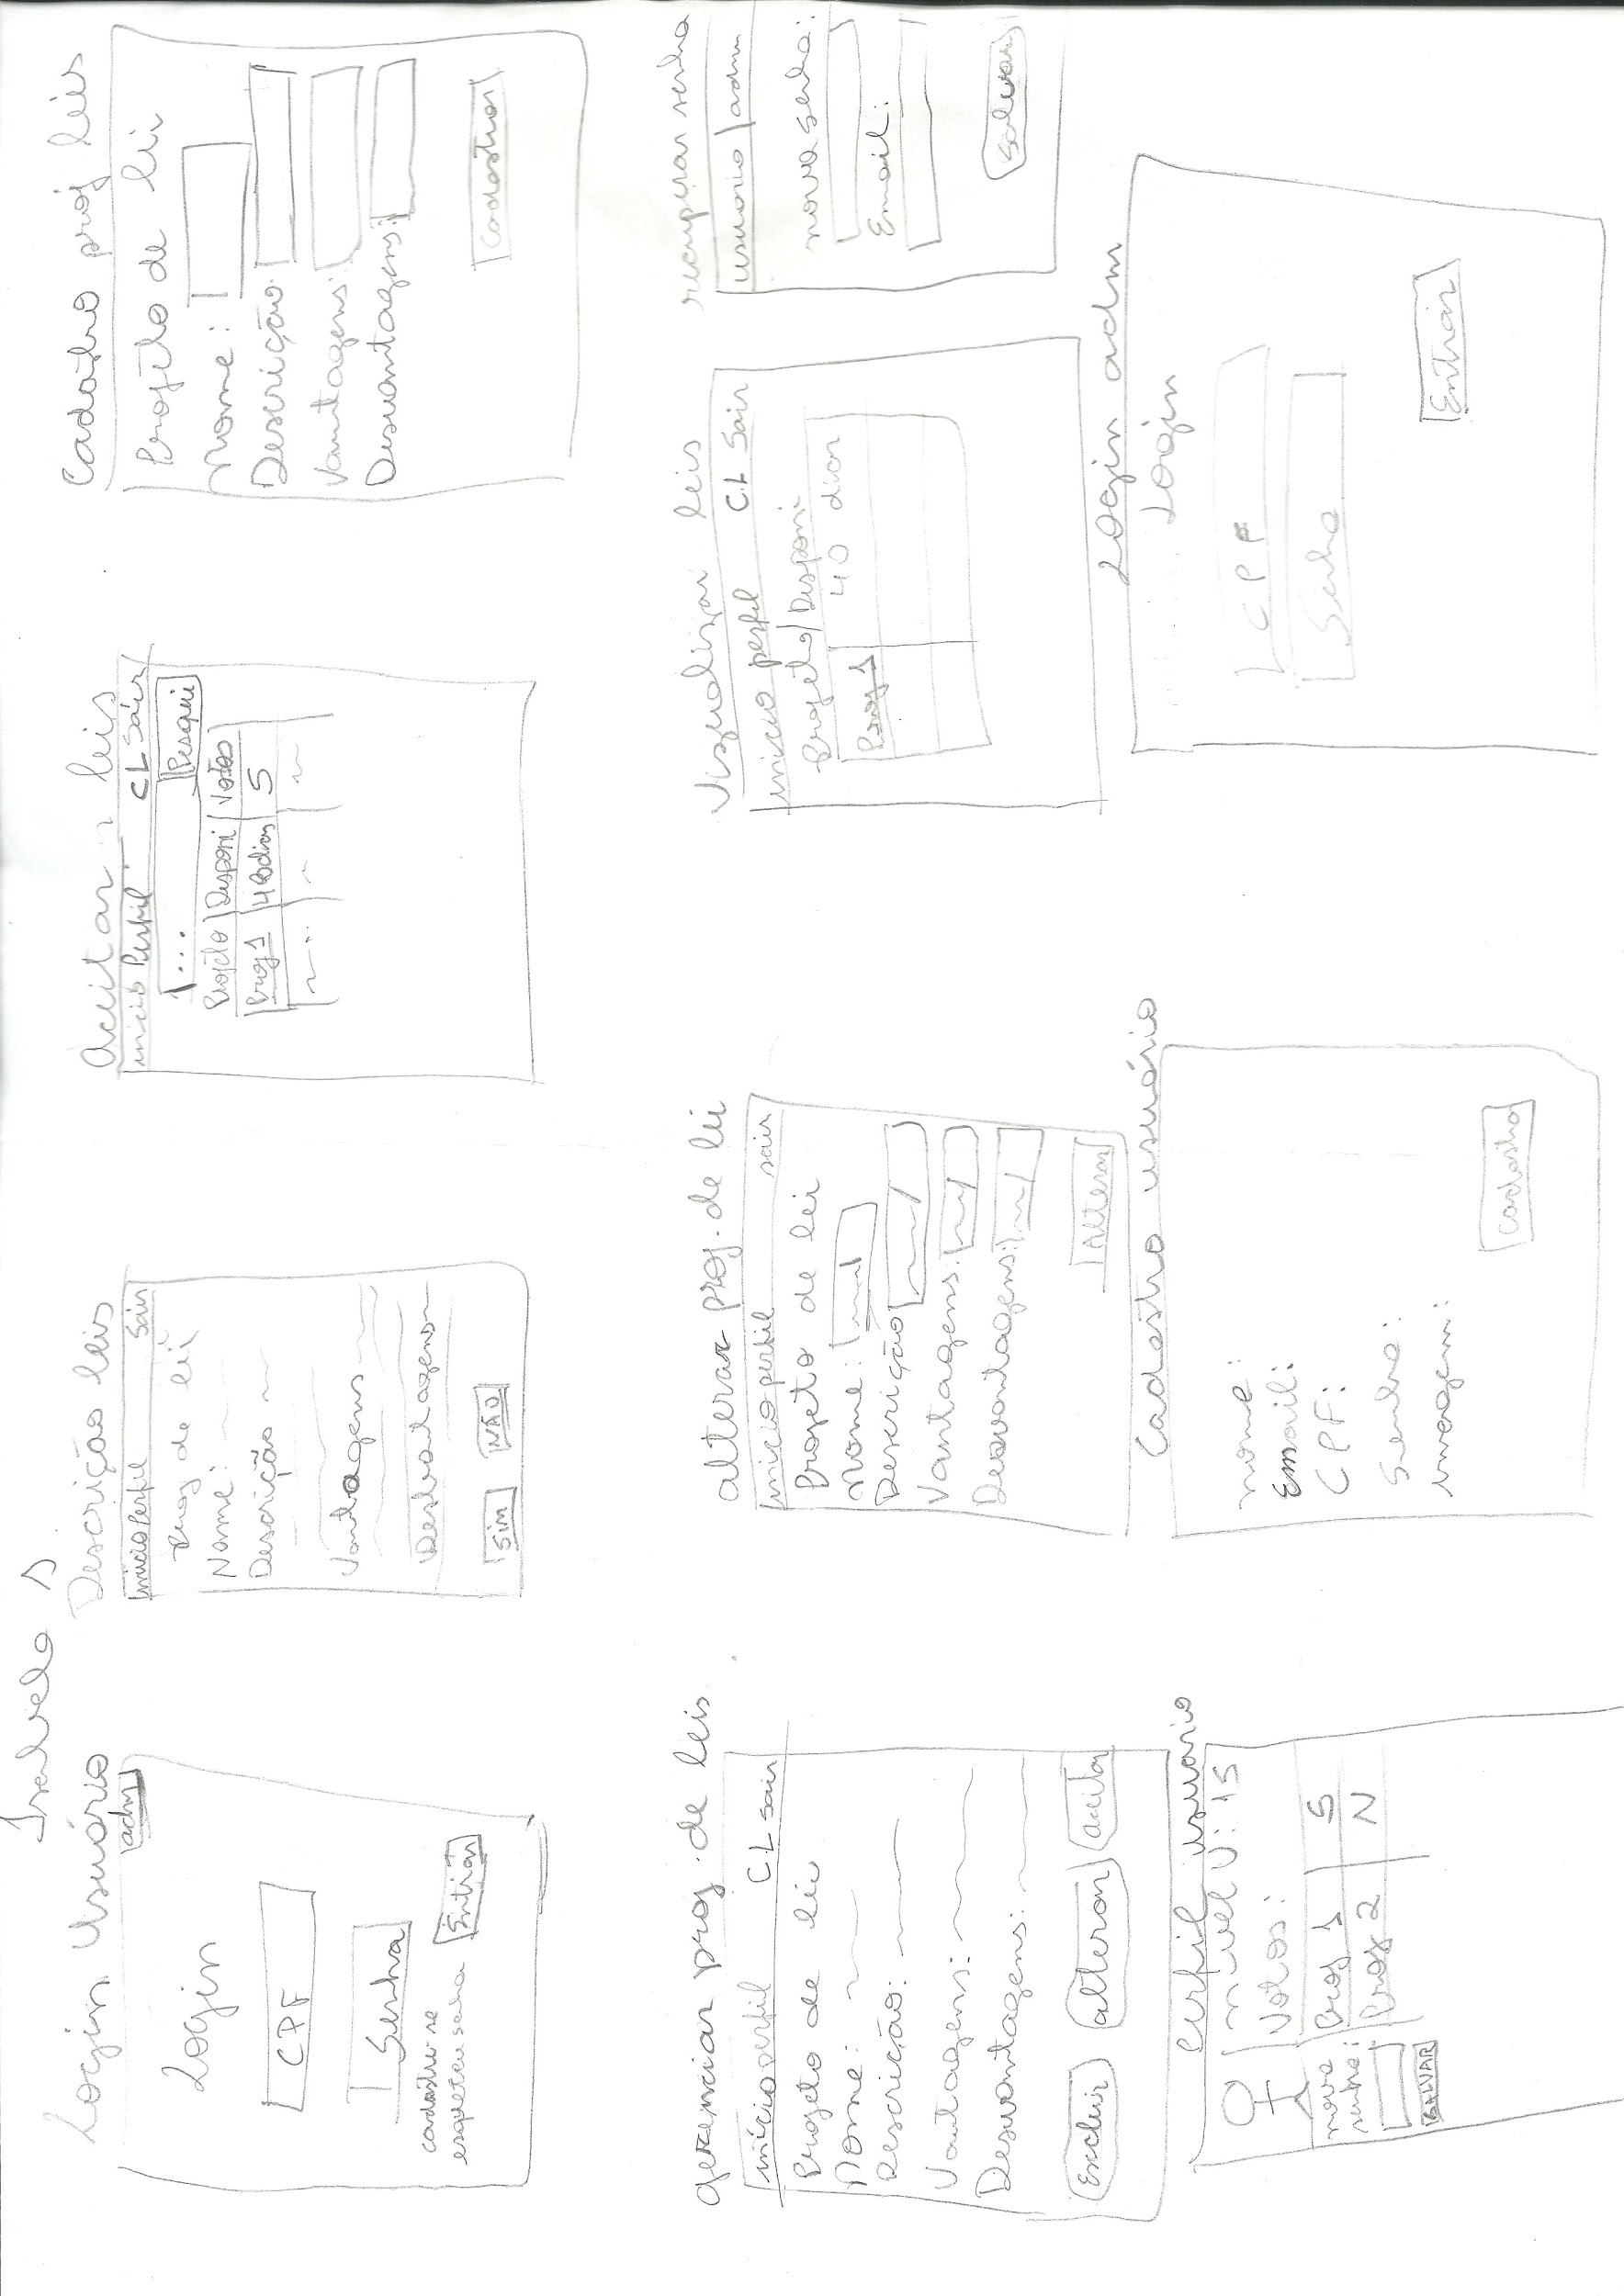 Isabela S
Login Usuário
adm
Login
CPF
Senha
cadastre-se
esqueceu senha
Entrar
Descrição leis
Inicio Perfil Sair
Proj de lei
Nome:
Descrição
Vantagens
Desvantagens
SIM NÃO
Aceitar leis
inicio Perfil CL Sair
... Pesqui
Projeto Disponi Votos
Proj 1 40 dias 5
Cadastro proj leis
Projeto de lei
Nome:
Descrição:
Vantagens:
Desvantagens:
Cadastrar
gerenciar proj. de leis
início perfil CL Sair
Projeto de lei
Nome:
Descrição:
Vantagens:
Desvantagens:
Excluir alterar aceitar
alterar proj. de lei
Inicio perfil sair
Projeto de lei
Nome:
Descrição
Vantagens:
Desvantagens:
Alterar
Vizualizar leis
inicio perfil C.L Sair
Projeto Disponi
Proj 1 40 dias
recuperar senha
usuario adm
nova senha:
Email:
Salvar
Perfil usuario
nivel U: 15
Votos:
Proj 1 S
Proj 2 N
nova
senha:
SALVAR
Cadastro usuário
nome:
Email:
CPF:
Senha:
imagem:
Cadastro
Login adm
Login
CPF
Senha
Entrar